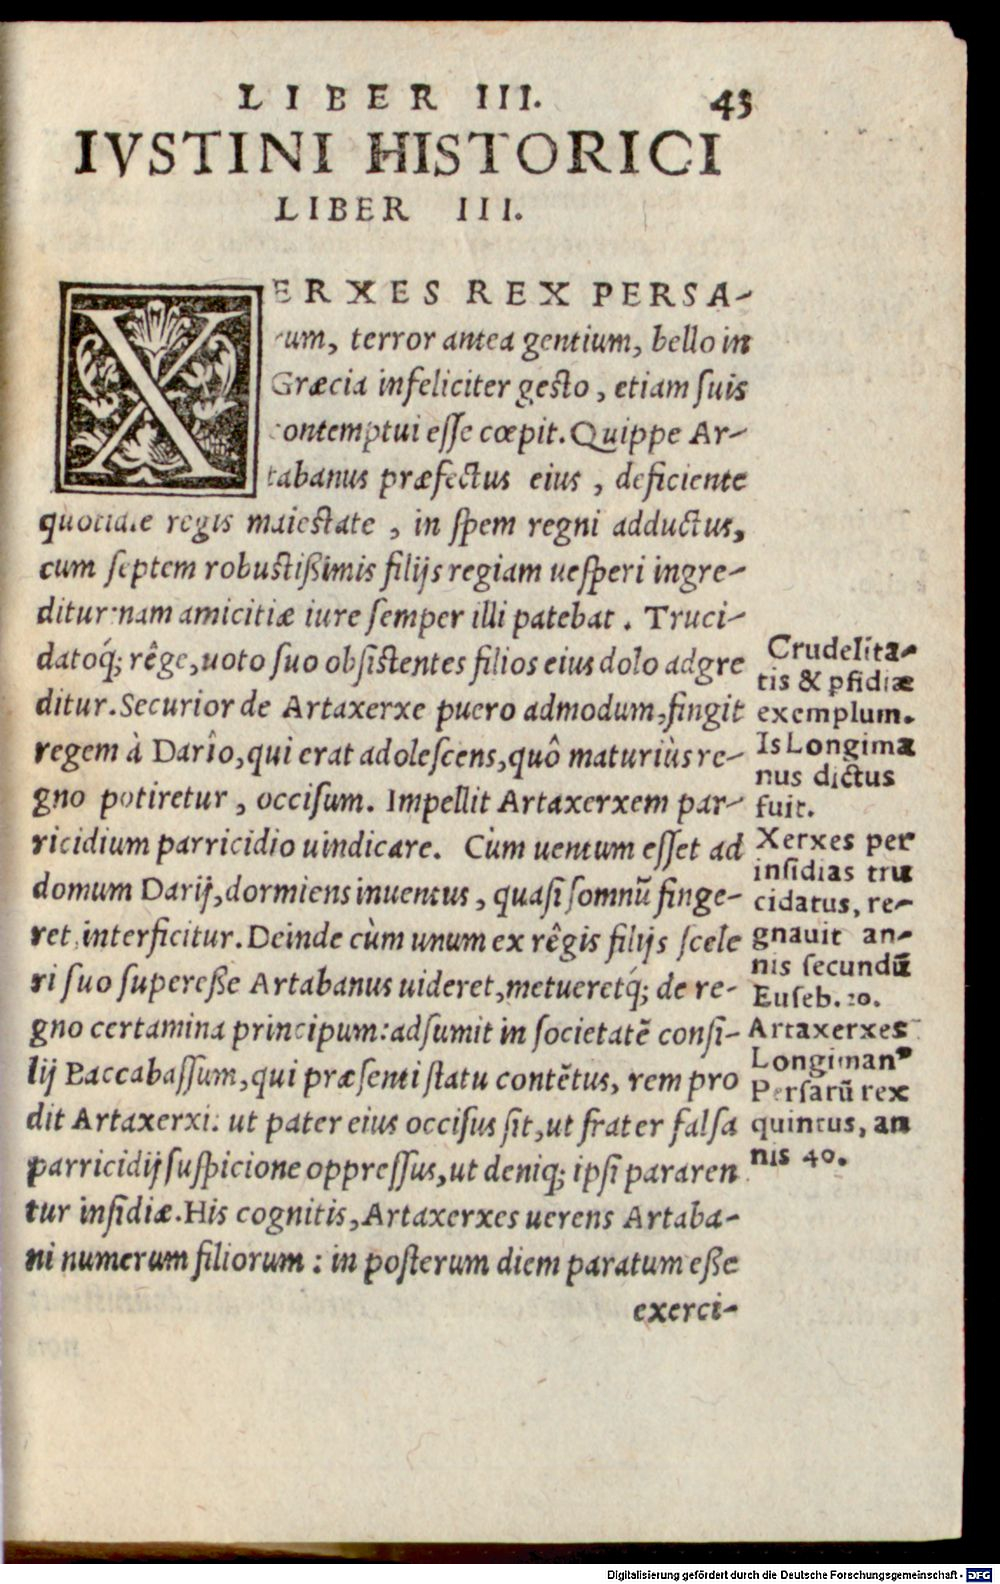 LIBER III. 43
IVSTINI HISTORICI
LIBER III.
XERXES REX PERSA-
rum, terror antea gentium, bello in
Græcia infeliciter gesto, etiam suis
contemptui esse cœpit. Quippe Ar-
tabanus præfectus eius, deficiente
quotidie regis maiestate, in spem regni adductus,
cum septem robustißimis filijs regiam uesperi ingre-
ditur: nam amicitiæ iure semper illi patebat. Truci-
datoq́; rêge, uoto suo obsistentes filios eius dolo adgre
ditur. Securior de Artaxerxe puero admodum, fingit
regem à Darîo, qui erat adolescens, quô maturiùs re-
gno potiretur, occisum. Impellit Artaxerxem par-
ricidium parricidio uindicare. Cùm uentum esset ad
domum Darij, dormiens inuentus, quasi somnũ finge-
ret, interficitur. Deinde cùm unum ex rêgis filijs scele
ri suoupereße Artabanus uideret, metueretq́; de re-
gno certamina principum: adsumit in societatẽ consi-
lij Baccabassum, qui præsenti statu contẽtus, rem pro
dit Artaxerxi: ut pater eius occisus sit, ut frater falsa
parricidij suspicione oppressus, ut deniq; ipsi pararen
tur insidiæ. His cognitis, Artaxerxes uerens Artaba-
ni numerum filiorum: in posterum diem paratum eße
exerci-
Crudelita-
tis & pfidiæ
exemplum.
Is Longima
nus dictus
fuit.
Xerxes per
insidias tru
cidatus, re-
gnauit an-
nis secundũ
Euseb. 20.
Artaxerxes
Longimanꝰ
Persarũ rex
quintus, an
nis 40.
Digitalisierung gefördert durch die Deutsche Forschungsgemeinschaft - DFG